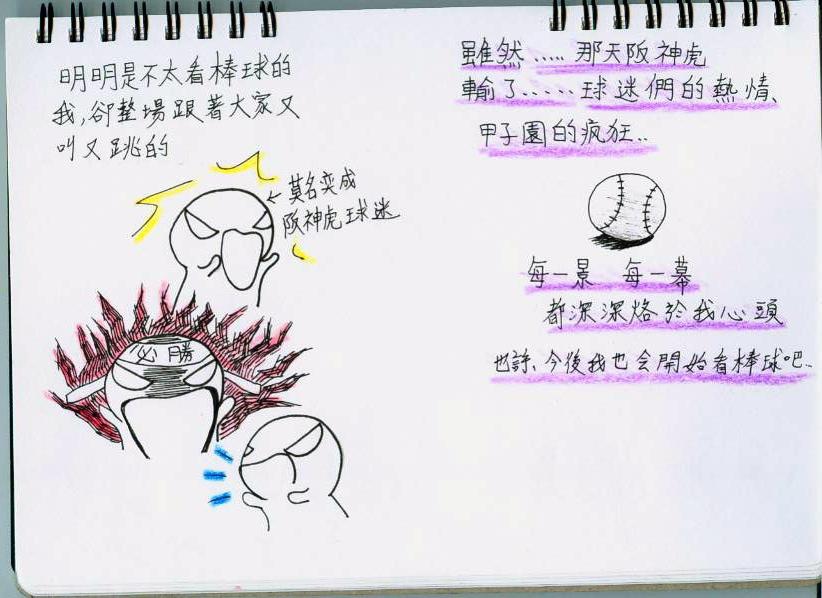 明明是不太看棒球的
我,卻整場跟著大家又
叫又跳的
←莫名变成
阪神虎球迷
必勝
雖然..... 那天阪神虎
輸了......球迷們的熱情、
甲子園的疯狂..
每一景 每一幕
都深深烙於我心頭
也許、今後我也会開始看棒球吧..